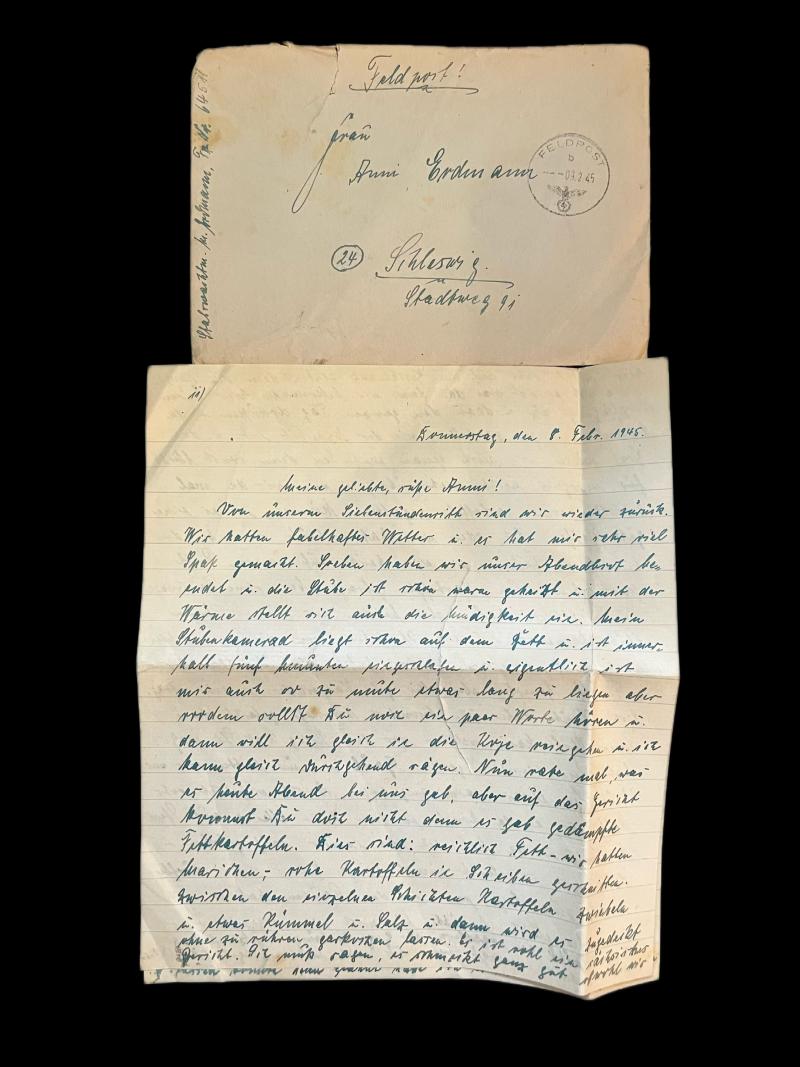 Feldpost!
Frau
Anni Erdmann
FELDPOST
b
09.2.45
24
Schleswig.
Stadtweg 91
Stabswachtm. H. Erdmann, Fp.Nr. 64511
Donnerstag, den 8. Febr. 1945.
Meine geliebte, süße Anni!
Von unserm Siebenstundenritt sind wir wieder zurück.
Wir hatten fabelhaftes Wetter u. es hat mir sehr viel
Spaß gemacht. Soeben haben wir unser Abendbrot be-
endet u. die Stube ist schön warm geheizt u. mit der
Wärme stellt sich auch die Müdigkeit ein. Mein
Stubenkamerad liegt schon auf dem Bett u. ist inner-
halb fünf Minuten eingeschlafen u. eigentlich ist
mir auch so zu mute etwas lang zu liegen aber
vordem sollst Du noch ein paar Worte hören u.
dann will ich gleich in die Koje reingehn u. ich
kann gleich durchgehend sagen. Nun rate mal, was
es heute Abend bei uns gab, aber auf das Gericht
kommst Du doch nicht denn es gab gedämpfte
Fettkartoffeln. Dies sind: reichlich Fett - wir hatten
- rohe Kartoffeln in Scheiben geschnitten.
Zwischen den einzelnen Schichten Kartoffeln Zwiebeln
u. etwas Kümmel u. Salz u. dann wird es zugedeckt
ohne zu rühren garkochen lassen. Es ist wohl ein
Gericht. Ich muß sagen, es schmeckt ganz gut